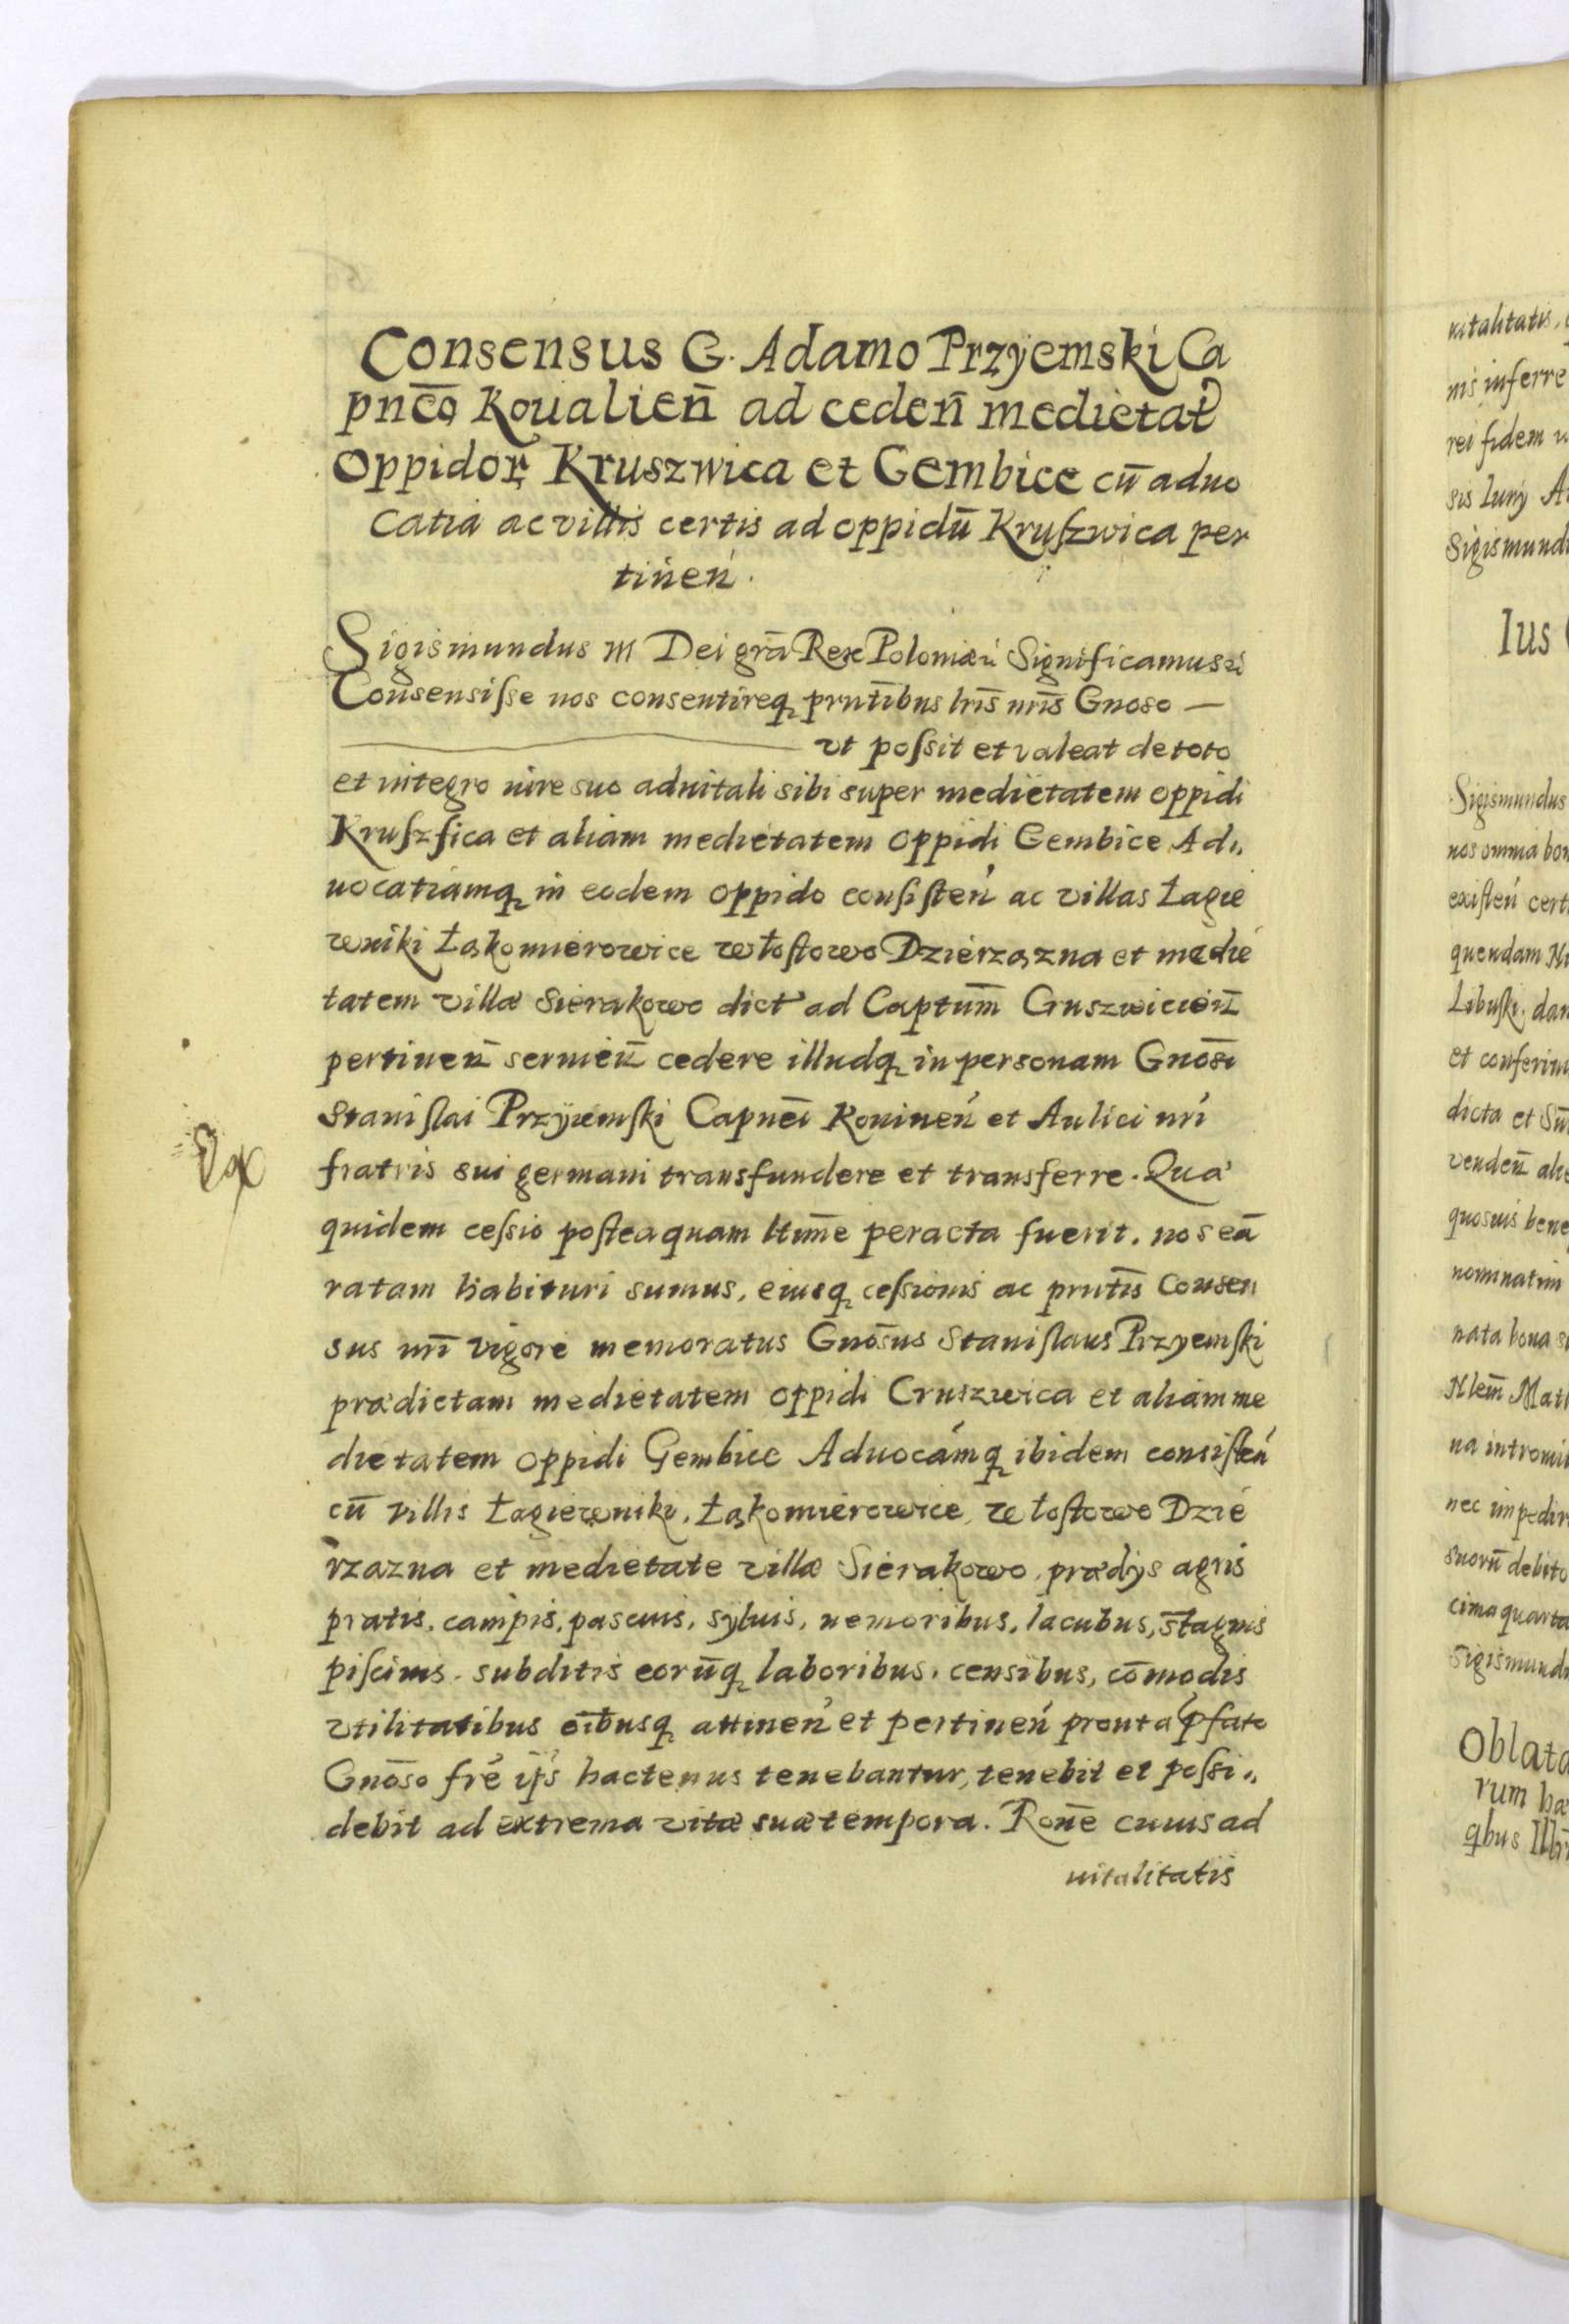 Consensus G. Adamo Przyemski Ca
pnēo Koualien̄ ad ceden̄ medietat
Oppidor̨ Kruszwica et Gembice cū aduo
catia ac villis certis ad oppidū Kruszwica per
tinen̄.
Sigismundus III Dei grā Rex Poloniæ Significamus
Consensisse nos consentireq, prntībus lrīs nrīs Gnoso —
vt possit et valeat de toto
et integro iure suo aduitali sibi super medietatem oppidi
Kruszfica et aliam medietatem oppidi Gembice Ad„
uocatiamq, in eodem oppido consisten̄ ac villas Łagie
wniki Łąkomierowice włostowo Dzierzązna et medie
tatem villæ Sierakowo dict' ad Captūm Cruszwicien̄
pertinen̄ seruien̄ cedere illudq, in personam Gnōsi
Stanislai Przyiemski Capnēi Koninen̄ et Aulici nrī
fratris sui germani transfundere et transferre. Quæ
quidem cessio posteaquam ltīme peracta fuerit. nos eā
ratam habituri sumus, eiusq, cessionis ac prntīs Consen
sus nrī vigore memoratus Gnōsus Stanislaus Przyemski
prædictam medietatem oppidi Cruszwica et aliam me
dietatem oppidi Gembice Aduocámq, ibidem consisten̄
cū villis Łagiewniki, Łąkomierowice, włostowo Dzie
rzazna et medietate villæ Sierakowo, prædys agris
pratis, campis, pascuis, syluis, nemoribus, lacubus, stagnis
piscinis, subditis eorūq, laboribus, censibus, cōmodis
vtilitatibus oībusq, attinen̄ et pertinen̄ prout a p̄fato
Gnōso frē ip̄s hactenus tenebantur, tenebit et possi„
debit ad extrema vitæ suæ tempora. Ronē cuius ad
uitalitatis
uitalitatis,
nis inferre
rei fidem
Sigismund
Ius
Sigismundus
nos omnia bon
existen̄ cert
quendam
Libuski, dan
et conferim
dicta et Su
venden̄ ali
quosuis bene
nominatim
nata bona
Nlem̄ Mat
na intromi
nec impedir
suorū debito
cima quarta
Sigismund
Oblata
rum hæ
qbus Illr